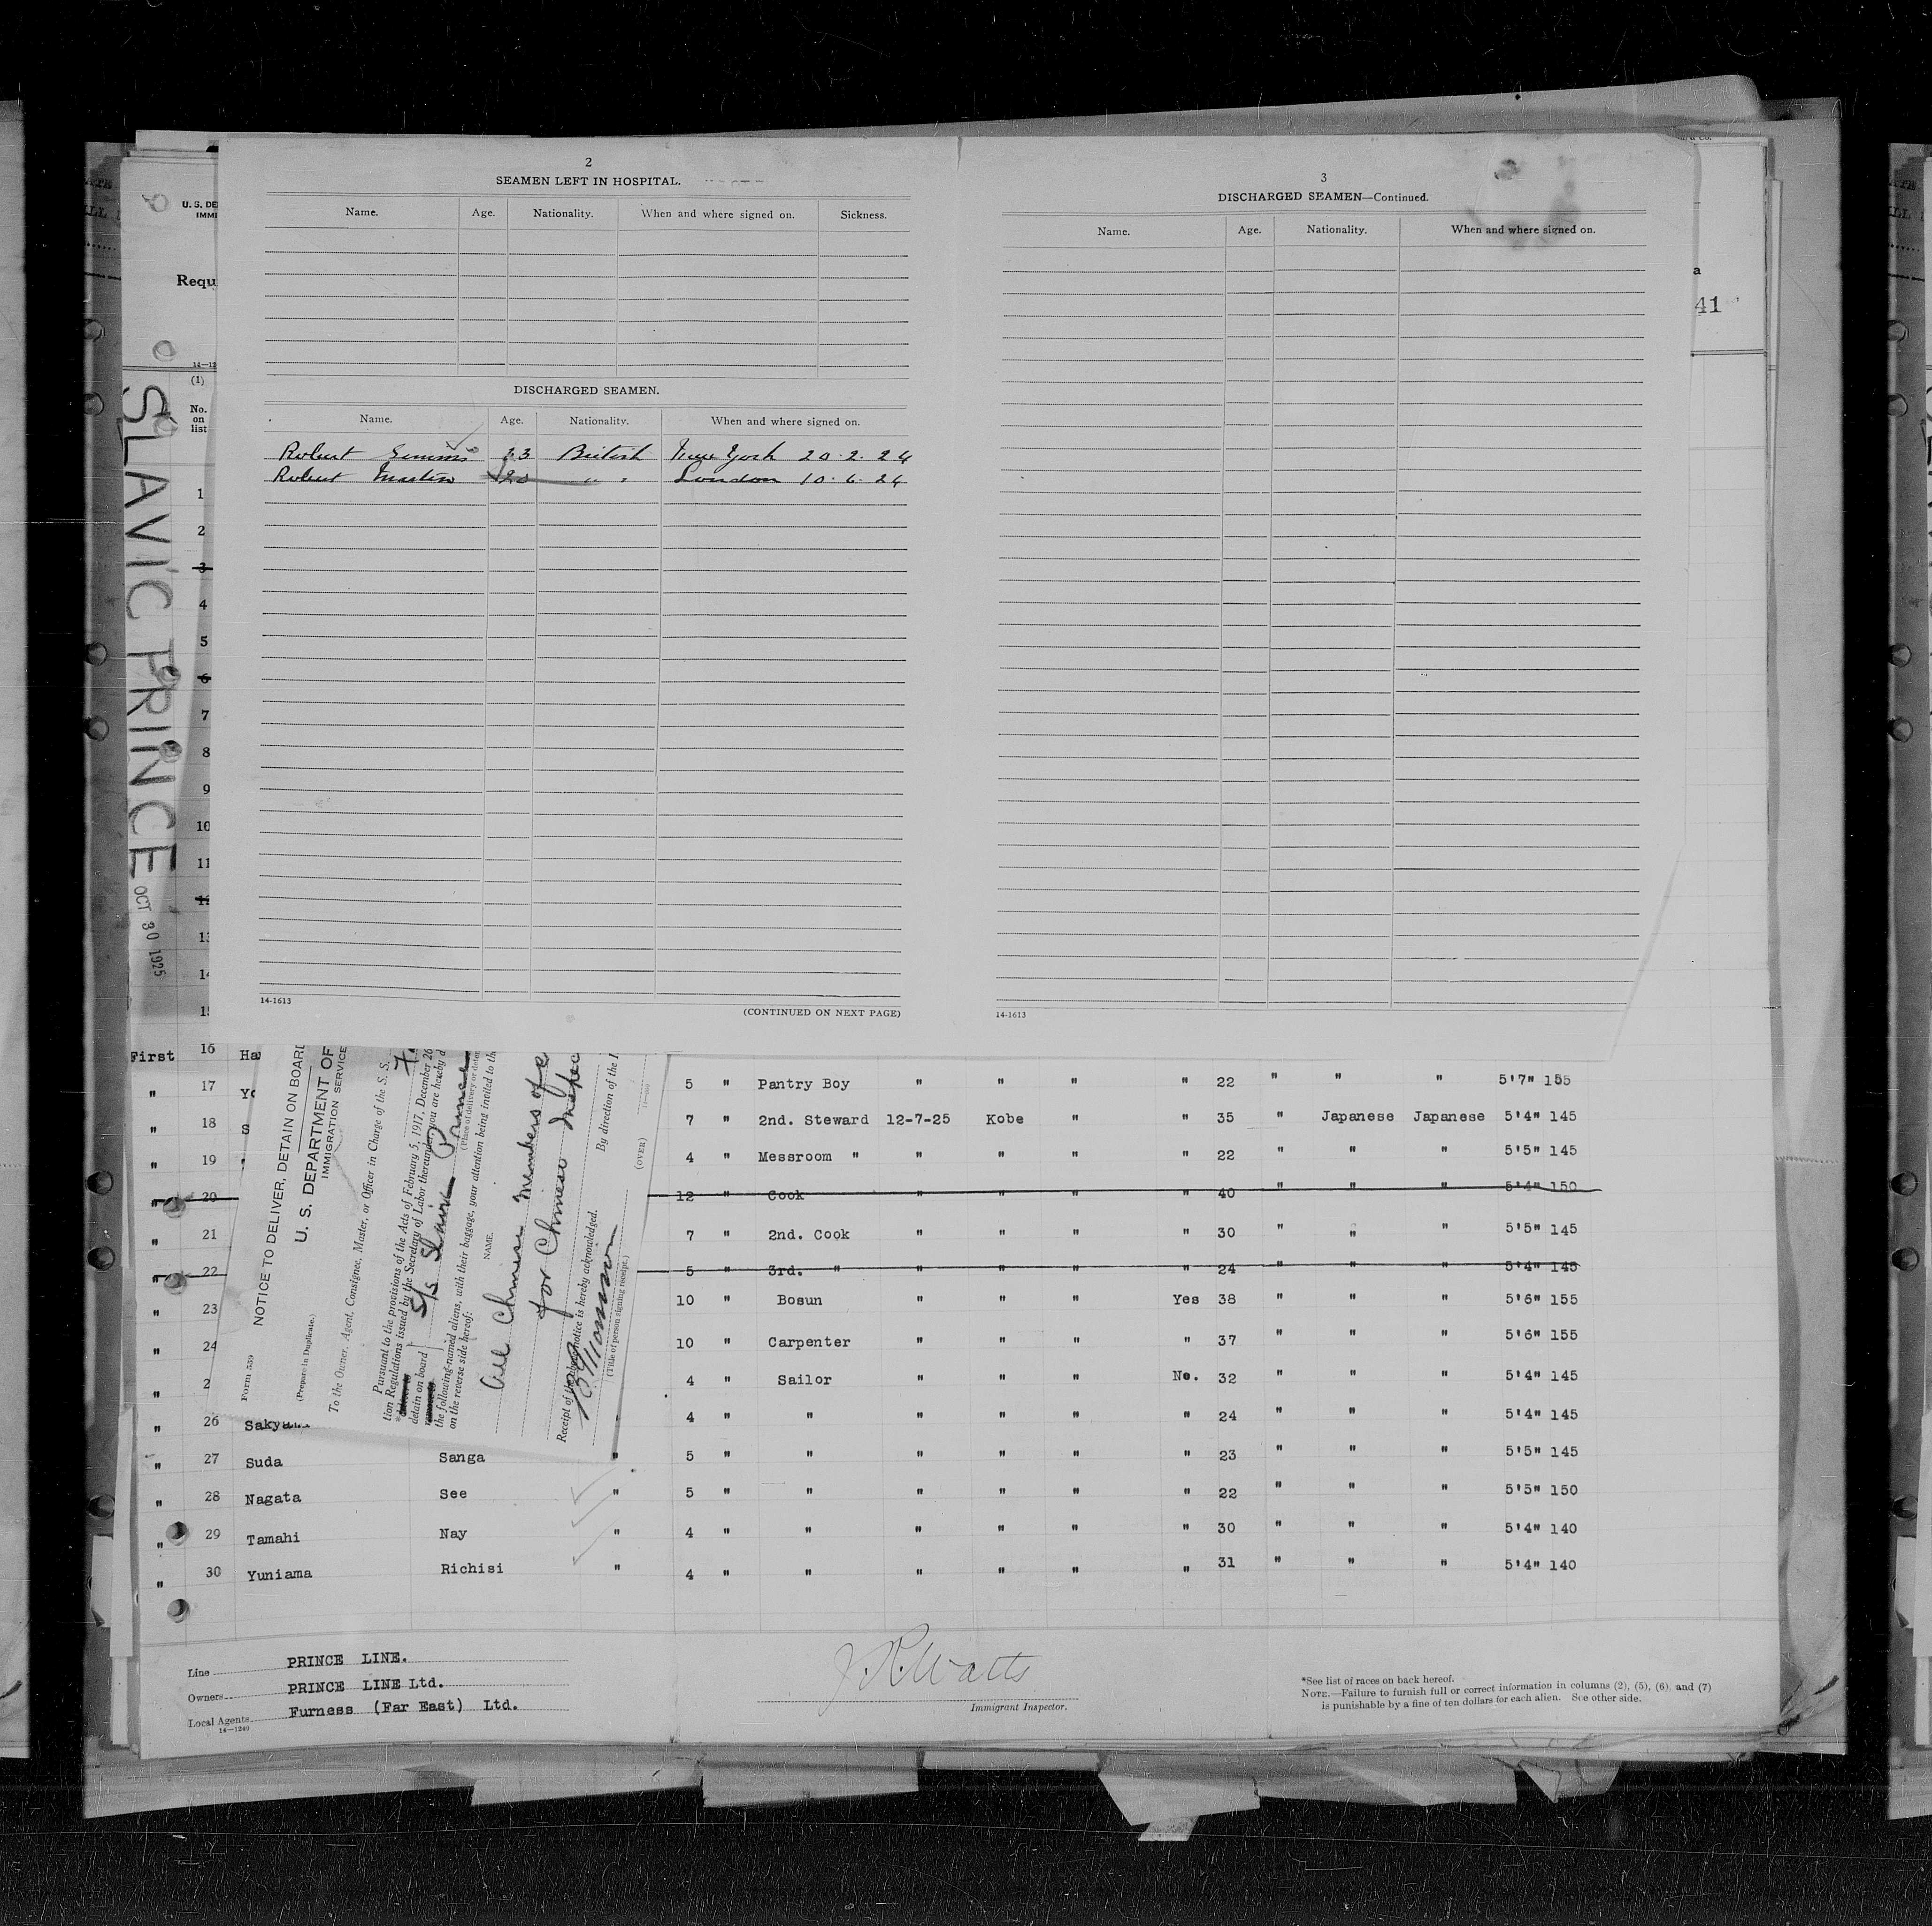 2
SEAMEN LEFT IN HOSPITAL.
Name. Age. Nationality. When and where signed on. Sickness.
DISCHARGED SEAMEN.
Name. Age. Nationality. When and where signed on.
Robert Simms 23 British New York 20.2.24
Robert Martin 20 " " London 10.6.24
14-1613
(CONTINUED ON NEXT PAGE)
3
DISCHARGED SEAMEN—Continued.
Name. Age. Nationality. When and where signed on.
14-1613
U. S. DE
IMMI
Requ
14—12
(1)
No.
on
list
41
SLAVIC PRINCE
OCT 30 1925
1
2
3
4
5
6
7
8
9
10
11
12
13
14
15
First 16 Ha
" 17 Yo 5 " Pantry Boy " " " " 22 " " " 5'7" 155
" 18 S 7 " 2nd. Steward 12-7-25 Kobe " " 35 " Japanese Japanese 5'4" 145
" 19 4 " Messroom " " " " " 22 " " " 5'5" 145
" 20 12 " Cook " " " " 40 " " " 5'4" 150
" 21 7 " 2nd. Cook " " " " 30 " " " 5'5" 145
" 22 5 " 3rd. " " " " " 24 " " " 5'4" 145
" 23 10 " Bosun " " " Yes 38 " " " 5'6" 155
" 24 10 " Carpenter " " " " 37 " " " 5'6" 155
" 2 4 " Sailor " " " No. 32 " " " 5'4" 145
" 26 Sakyama 4 " " " " " " 24 " " " 5'4" 145
" 27 Suda Sanga " 5 " " " " " " 23 " " " 5'5" 145
" 28 Nagata See " 5 " " " " " " 22 " " " 5'5" 150
" 29 Tamahi Nay " 4 " " " " " " 30 " " " 5'4" 140
" 30 Yuniama Richisi " 4 " " " " " " 31 " " " 5'4" 140
Form 539
NOTICE TO DELIVER, DETAIN ON BOARD
(Prepare in Duplicate.)
U. S. DEPARTMENT OF
IMMIGRATION SERVICE
To the Owner, Agent, Consignee, Master, or Officer in Charge of the S. S.
Pursuant to the provisions of the Acts of February 5, 1917, December 26
tion Regulations issued by the Secretary of Labor thereunder, you are hereby d
detain on board S/s Slavic Prince
(Place of delivery or deten
the following-named aliens, with their baggage, your attention being invited to th
on the reverse side hereof:
NAME.
All Chinese Members of
for Chinese Inspec
By direction of the I
Receipt of the above notice is hereby acknowledged.
(Title of person signing receipt.)
(OVER)
Line PRINCE LINE.
Owners PRINCE LINE Ltd.
Local Agents Furness (Far East) Ltd.
14—1240
J. R. Watts
Immigrant Inspector.
*See list of races on back hereof.
NOTE.—Failure to furnish full or correct information in columns (2), (5), (6) and (7)
is punishable by a fine of ten dollars for each alien. See other side.